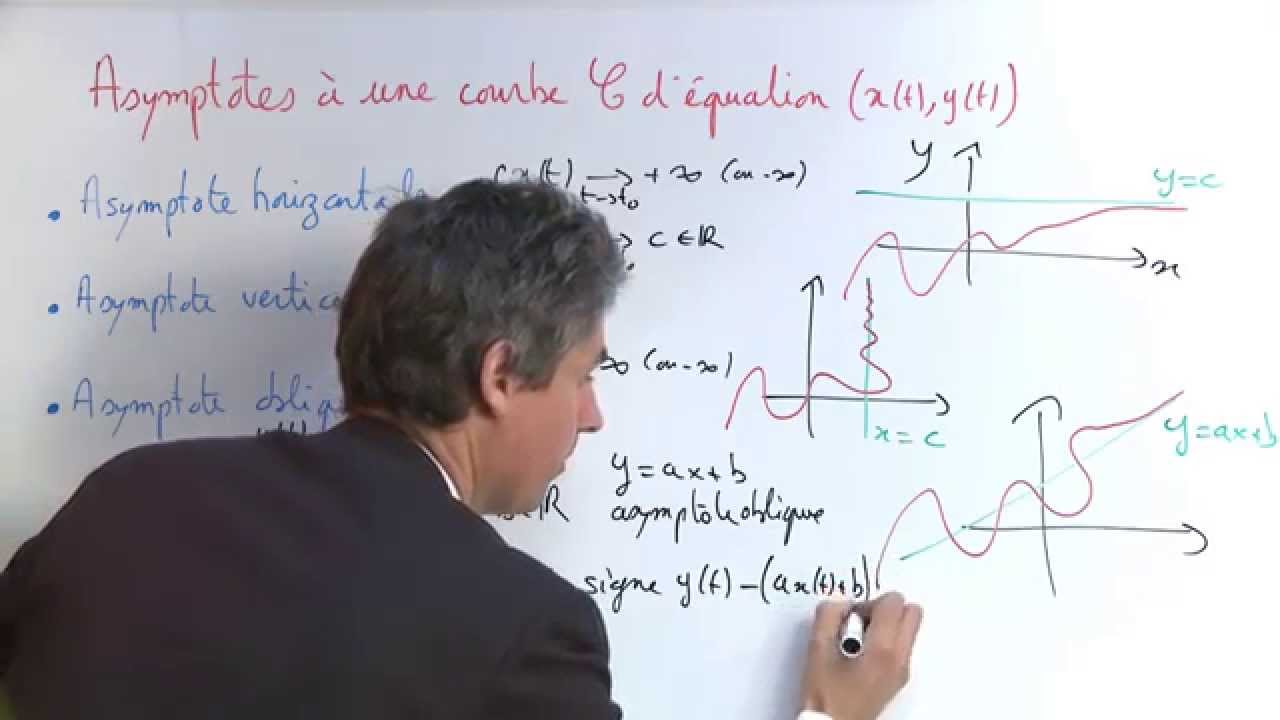 Asymptotes à une courbe C d'équation (x(t), y(t))
• Asymptote horizontale
x(t) → +∞ (ou -∞)
t→t₀
→ c ∈ ℝ
y
y=c
x
• Asymptote vertica
∞ (ou -∞)
x = c
• Asymptote obliqu
y=ax+b
y = ax+b
ℝ asymptôte oblique
signe y(t) - (ax(t)+b)